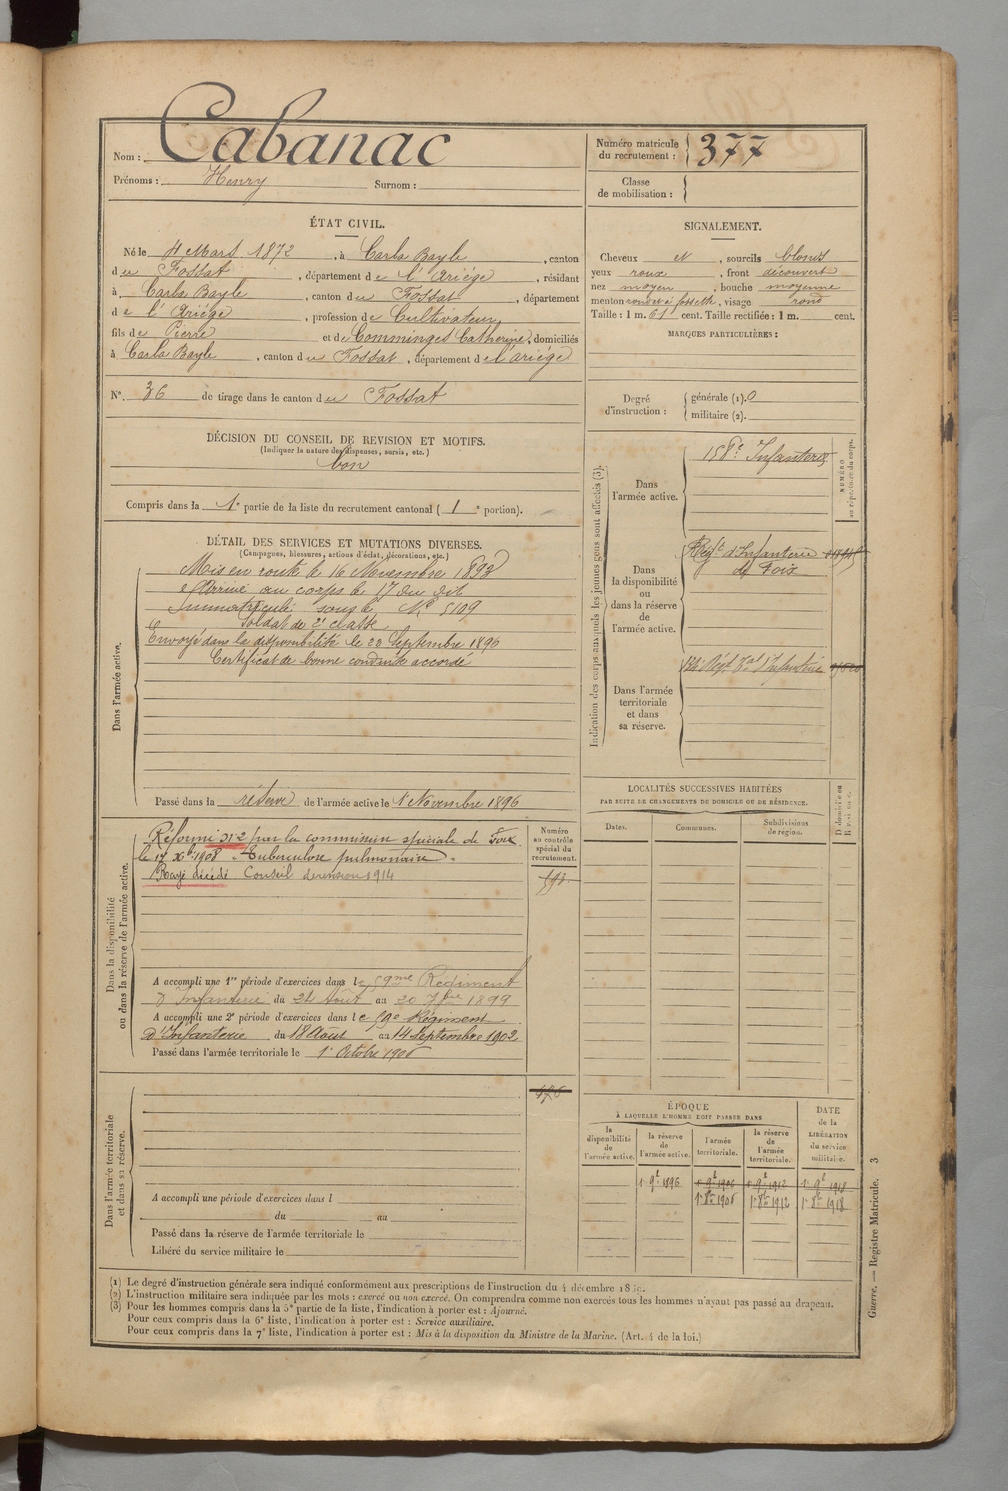 Nom : Cabanac
Prénoms : Henry Surnom :
Numéro matricule du recrutement : 377
Classe de mobilisation :
ÉTAT CIVIL.
Né le 4 Mars 1872, à Carla Bayle, canton
du Fossat, département de l'Ariége, résidant
à Carla Bayle, canton du Fossat, département
de l'Ariége, profession de Cultivateur,
fils de Pierre et de Comminges Catherine, domiciliés
à Carla Bayle, canton du Fossat, département de l'ariége
N° 36 de tirage dans le canton du Fossat
SIGNALEMENT.
Cheveux et, sourcils blonds
yeux roux, front découvert
nez moyen, bouche moyenne
menton rond à fossette, visage rond
Taille : 1 m. 61 cent. Taille rectifiée : 1 m. cent.
MARQUES PARTICULIÈRES :
Degré d'instruction : générale (1). 0
militaire (2).
DÉCISION DU CONSEIL DE REVISION ET MOTIFS.
(Indiquer la nature des dispenses, sursis, etc.)
bon
Compris dans la 1e partie de la liste du recrutement cantonal ( 1 e portion).
DÉTAIL DES SERVICES ET MUTATIONS DIVERSES.
(Campagnes, blessures, actions d'éclat, décorations, etc.)
Dans l'armée active.
Mis en route le 16 Novembre 1893
Arrivé au corps le 17 du dit
Immatriculé sous le N° 5109
Soldat de 2e classe
Envoyé dans la disponibilité le 23 Septembre 1896
Certificat de bonne conduite accordé
Passé dans la réserve de l'armée active le 1 Novembre 1896
Indication des corps auxquels les jeunes gens sont affectés (3).
NUMÉRO au répertoire du corps.
Dans l'armée active.
158e Infanterie
Dans la disponibilité ou dans la réserve de l'armée active.
Régt d'Infanterie
de Foix
Dans l'armée territoriale et dans sa réserve.
134 Régt Tal d'Infanterie
Dans la disponibilité ou dans la réserve de l'armée active.
Réformé N° 2 par la commission spéciale de Foix
le 17 Xbre 1908 "Tuberculose pulmonaire".
Rayé décédé Conseil de revision 1914
Numéro au contrôle spécial du recrutement.
A accompli une 1re période d'exercices dans le 59me Régiment
d'Infanterie du 24 Août au 20 7bre 1899
A accompli une 2e période d'exercices dans le 59e Régiment
d'Infanterie du 18 Août au 14 Septembre 1902
Passé dans l'armée territoriale le 1er Octobre 1906
Dans l'armée territoriale et dans sa réserve.
A accompli une période d'exercices dans l
du au
Passé dans la réserve de l'armée territoriale le
Libéré du service militaire le
LOCALITÉS SUCCESSIVES HABITÉES
PAR SUITE DE CHANGEMENTS DE DOMICILE OU DE RÉSIDENCE.
Dates. Communes. Subdivisions de région.
ÉPOQUE
À LAQUELLE L'HOMME DOIT PASSER DANS
la disponibilité de l'armée active. la réserve de l'armée active. l'armée territoriale. la réserve de l'armée territoriale.
DATE de la LIBÉRATION du service militaire.
1r 9bre 1896 1r 9bre 1906 1r 9bre 1912 1r 9bre 1918
1r 8bre 1906 1r 8bre 1912 1r 8bre 1918
(1) Le degré d'instruction générale sera indiqué conformément aux prescriptions de l'instruction du 4 décembre 1889.
(2) L'instruction militaire sera indiquée par les mots : exercé ou non exercé. On comprendra comme non exercés tous les hommes n'ayant pas passé au drapeau.
(3) Pour les hommes compris dans la 5e partie de la liste, l'indication à porter est : Ajourné.
Pour ceux compris dans la 6e liste, l'indication à porter est : Service auxiliaire.
Pour ceux compris dans la 7e liste, l'indication à porter est : Mis à la disposition du Ministre de la Marine. (Art. 4 de la loi.)
Guerre. — Registre Matricule. 3